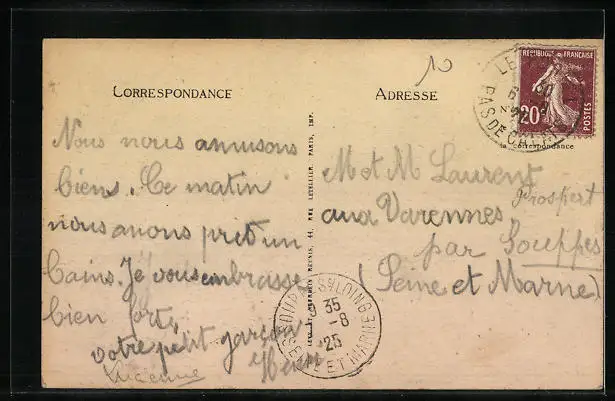 10
CORRESPONDANCE
ADRESSE
RÉPUBLIQUE FRANÇAISE
20c
POSTES
PAS DE CALAIS
Correspondance
Nous nous amusons
biens. Ce matin
nous avons prit un
bains. Je vous embrasse
bien fort,
votre petit garçon
Henri
Lucienne
M et M Laurent
Prospert
aux Varennes
par Souppes
(Seine et Marne)
SOUPPES S/ LOING
35
-8
25
SEINE ET MARNE
RUE LETELLIER, PARIS, IMP.